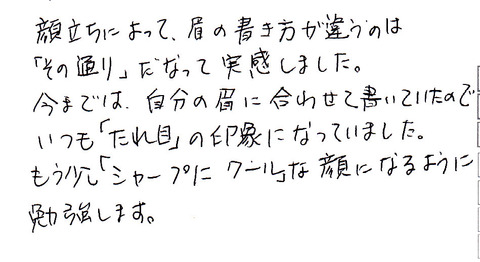 顔立ちによって、眉の書き方が違うのは
「その通り」だなって実感しました。
今までは、自分の眉に合わせて書いていたので
いつも「たれ目」の印象になっていました。
もう少し「シャープに クール」な顔になるように
勉強します。